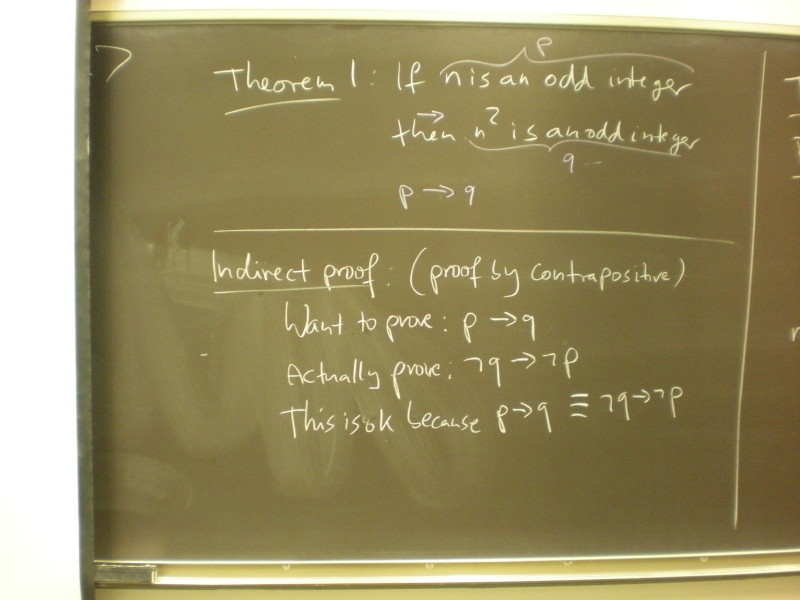 p
Theorem 1: If n is an odd integer
then n² is an odd integer
q
p → q
Indirect proof: (proof by contrapositive)
Want to prove: p → q
Actually prove: ¬q → ¬p
This is ok because p → q ≡ ¬q → ¬p